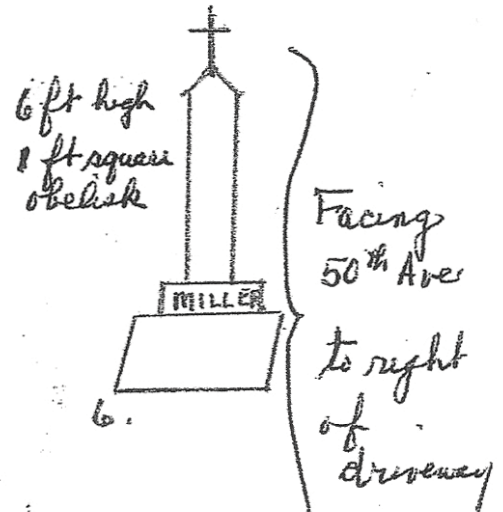 6 ft high
1 ft square
obelisk
MILLER
6.
Facing
50th Ave
to right
of
driveway